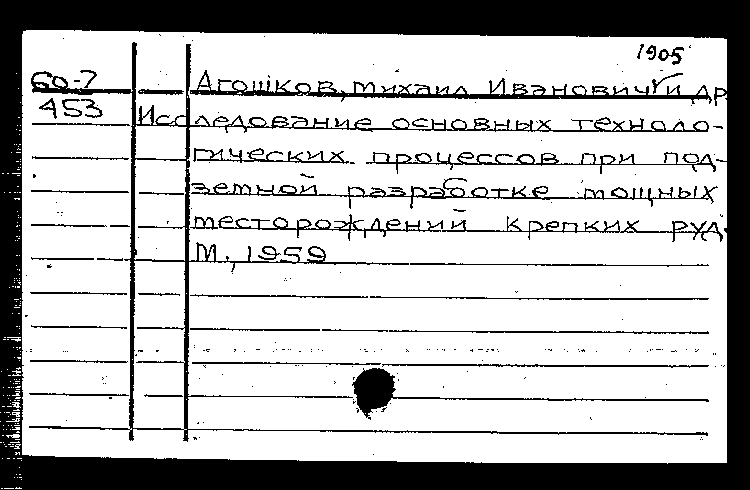 1905
60-7 Агошков, Михаил Иванович и др
453 Исследование основных техноло-
гических процессов при под-
земной разработке мощных
месторождений крепких руд.
М., 1959